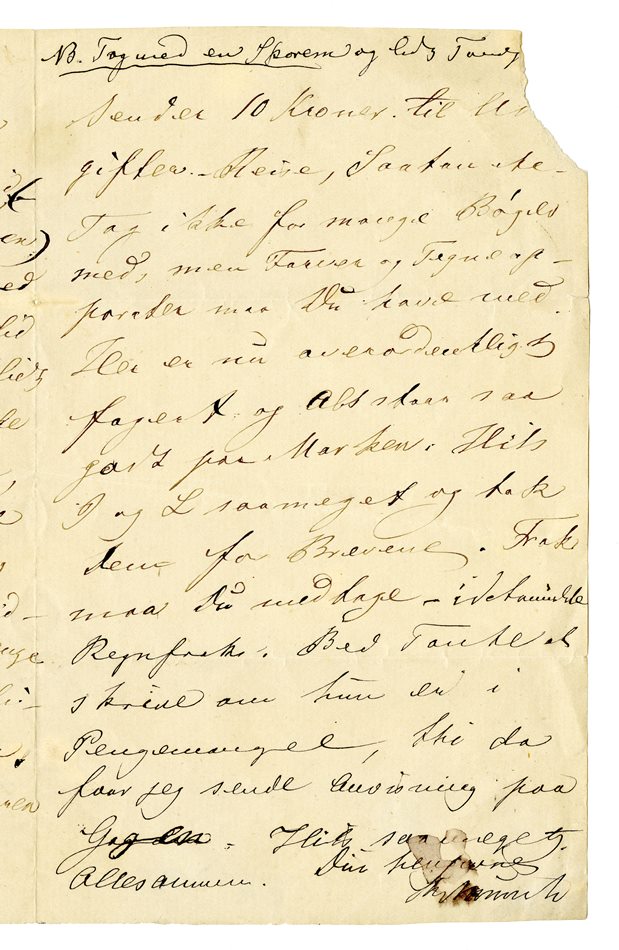 NB. Tag med en Skorem og lidt
Sender 10 Kroner. til Ud
gifter. – Reise, Saatan etc –
Tag ikke for mange Bøger
med, men Farver og Tegneap–
parater maa Du have med.
Her er nu overordentligt
fagert og Alt staar saa
godt paa Marken. Hils
I og L saameget og tak
dem for Brevene. Frak
maa Du medtage – idetmindste
Regnfrak. Bed Tante at
skrive om hun er i
Pengemangel, thi da
faar jeg sende Anvisning paa
Gagen. Hils saameget.
Allesammen. Din hengivne
Munch